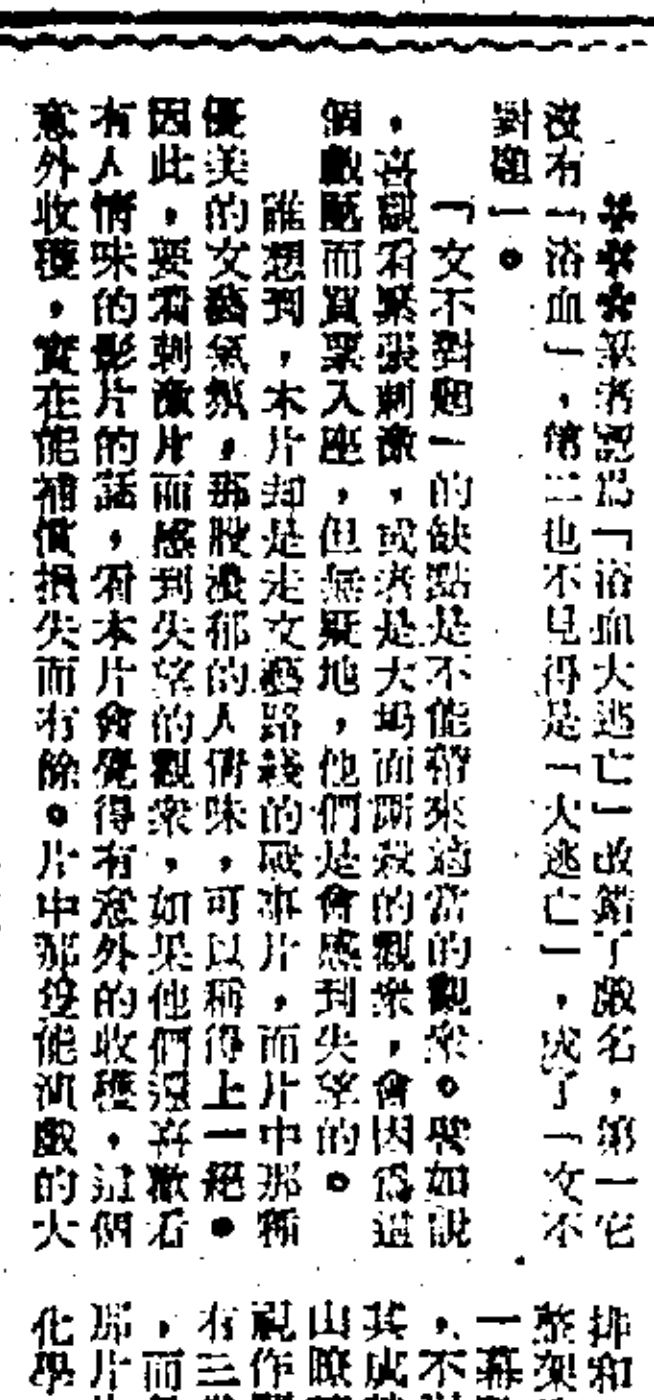 ☆☆☆筆者認為「浴血大逃亡」改錯了戲名,第一它
沒有「浴血」,第二也不見得是「大逃亡」,成了「文不
對題」。
「文不對題」的缺點是不能帶來適當的觀眾。譬如說
,喜歡看緊張刺激,或者是大場面斯殺的觀眾,會因為這
個戲匭而買票入座,但無疑地,他們是會感到失望的。
誰想到,本片却是走文藝路綫的戰事片,而片中那種
優美的文藝氣氛,那股濃郁的人情味,可以稱得上一絕。
因此,要看刺激片而感到失望的觀眾,如果他們還喜歡看
有人情味的影片的話,看本片會覺得有意外的收穫,這個
意外收穫,實在能補償損失而有餘。片中那隻能演戲的大
排和
整架
一幕
,不
其成
山瞭
視作
有三
,而
那片
化學